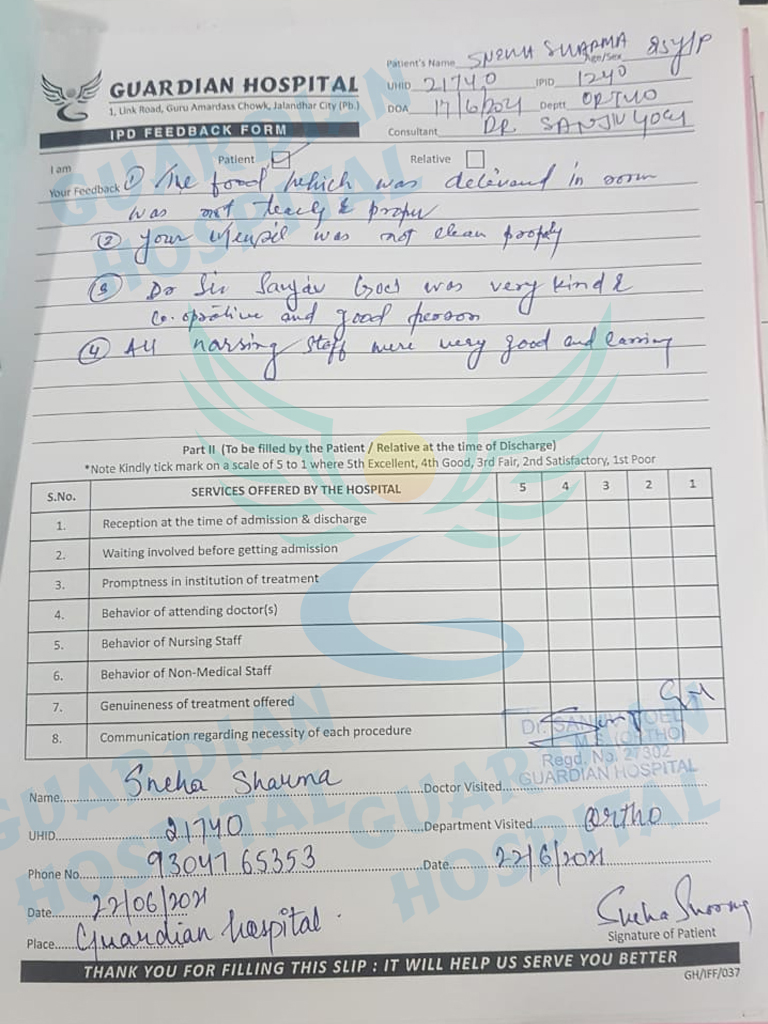 GUARDIAN HOSPITAL
1, Link Road, Guru Amardass Chowk, Jalandhar City (Pb.)
IPD FEEDBACK FORM
Patient's Name SNEHA SHARMA Age/Sex
UHID 21740 IPID 1240
DOA 17/6/2021 Deptt ORTHO
Consultant DR SANJIV
I am Patient Relative
Your Feedback ① The food which was in room
was not & proper
② your was not clean
③ Dr Sir Goel was very kind &
and good person
④ All narsing staff were very good and
Part II (To be filled by the Patient / Relative at the time of Discharge)
*Note Kindly tick mark on a scale of 5 to 1 where 5th Excellent, 4th Good, 3rd Fair, 2nd Satisfactory, 1st Poor
S.No. SERVICES OFFERED BY THE HOSPITAL 5 4 3 2 1
1. Reception at the time of admission & discharge
2. Waiting involved before getting admission
3. Promptness in institution of treatment
4. Behavior of attending doctor(s)
5. Behavior of Nursing Staff
6. Behavior of Non-Medical Staff
7. Genuineness of treatment offered
8. Communication regarding necessity of each procedure
Dr. GOEL
M.S (ORTHO)
Regd. No. 27302
GUARDIAN HOSPITAL
Name Sneha Sharma Doctor Visited
UHID 21740 Department Visited Ortho
Phone No. 93047 65353 Date 22/6/2021
Date 22/06/2021
Place Guardian hospital.
Sneha
Signature of Patient
THANK YOU FOR FILLING THIS SLIP : IT WILL HELP US SERVE YOU BETTER
GH/IFF/037
GUARDIAN HOSPITAL
GUARDIAN HOSPITAL
GUARDIAN HOSPITAL